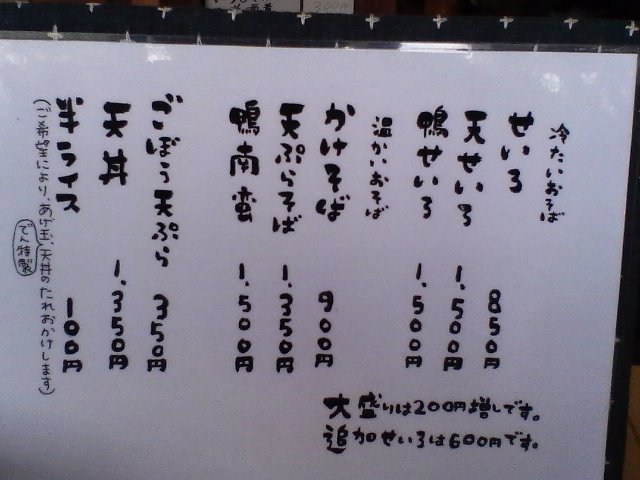 冷たいおそば
せいろ 850円
天せいろ 1,500円
鴨せいろ 1,500円
温かいおそば
かけそば 900円
天ぷらそば 1,350円
鴨南蛮 1,500円
ごぼう天ぷら 350円
天丼 1,350円
半ライス 100円
(ご希望により、あげ玉、天丼のたれおかけします)
でん特製
大盛りは200円増しです。
追加せいろは600円です。